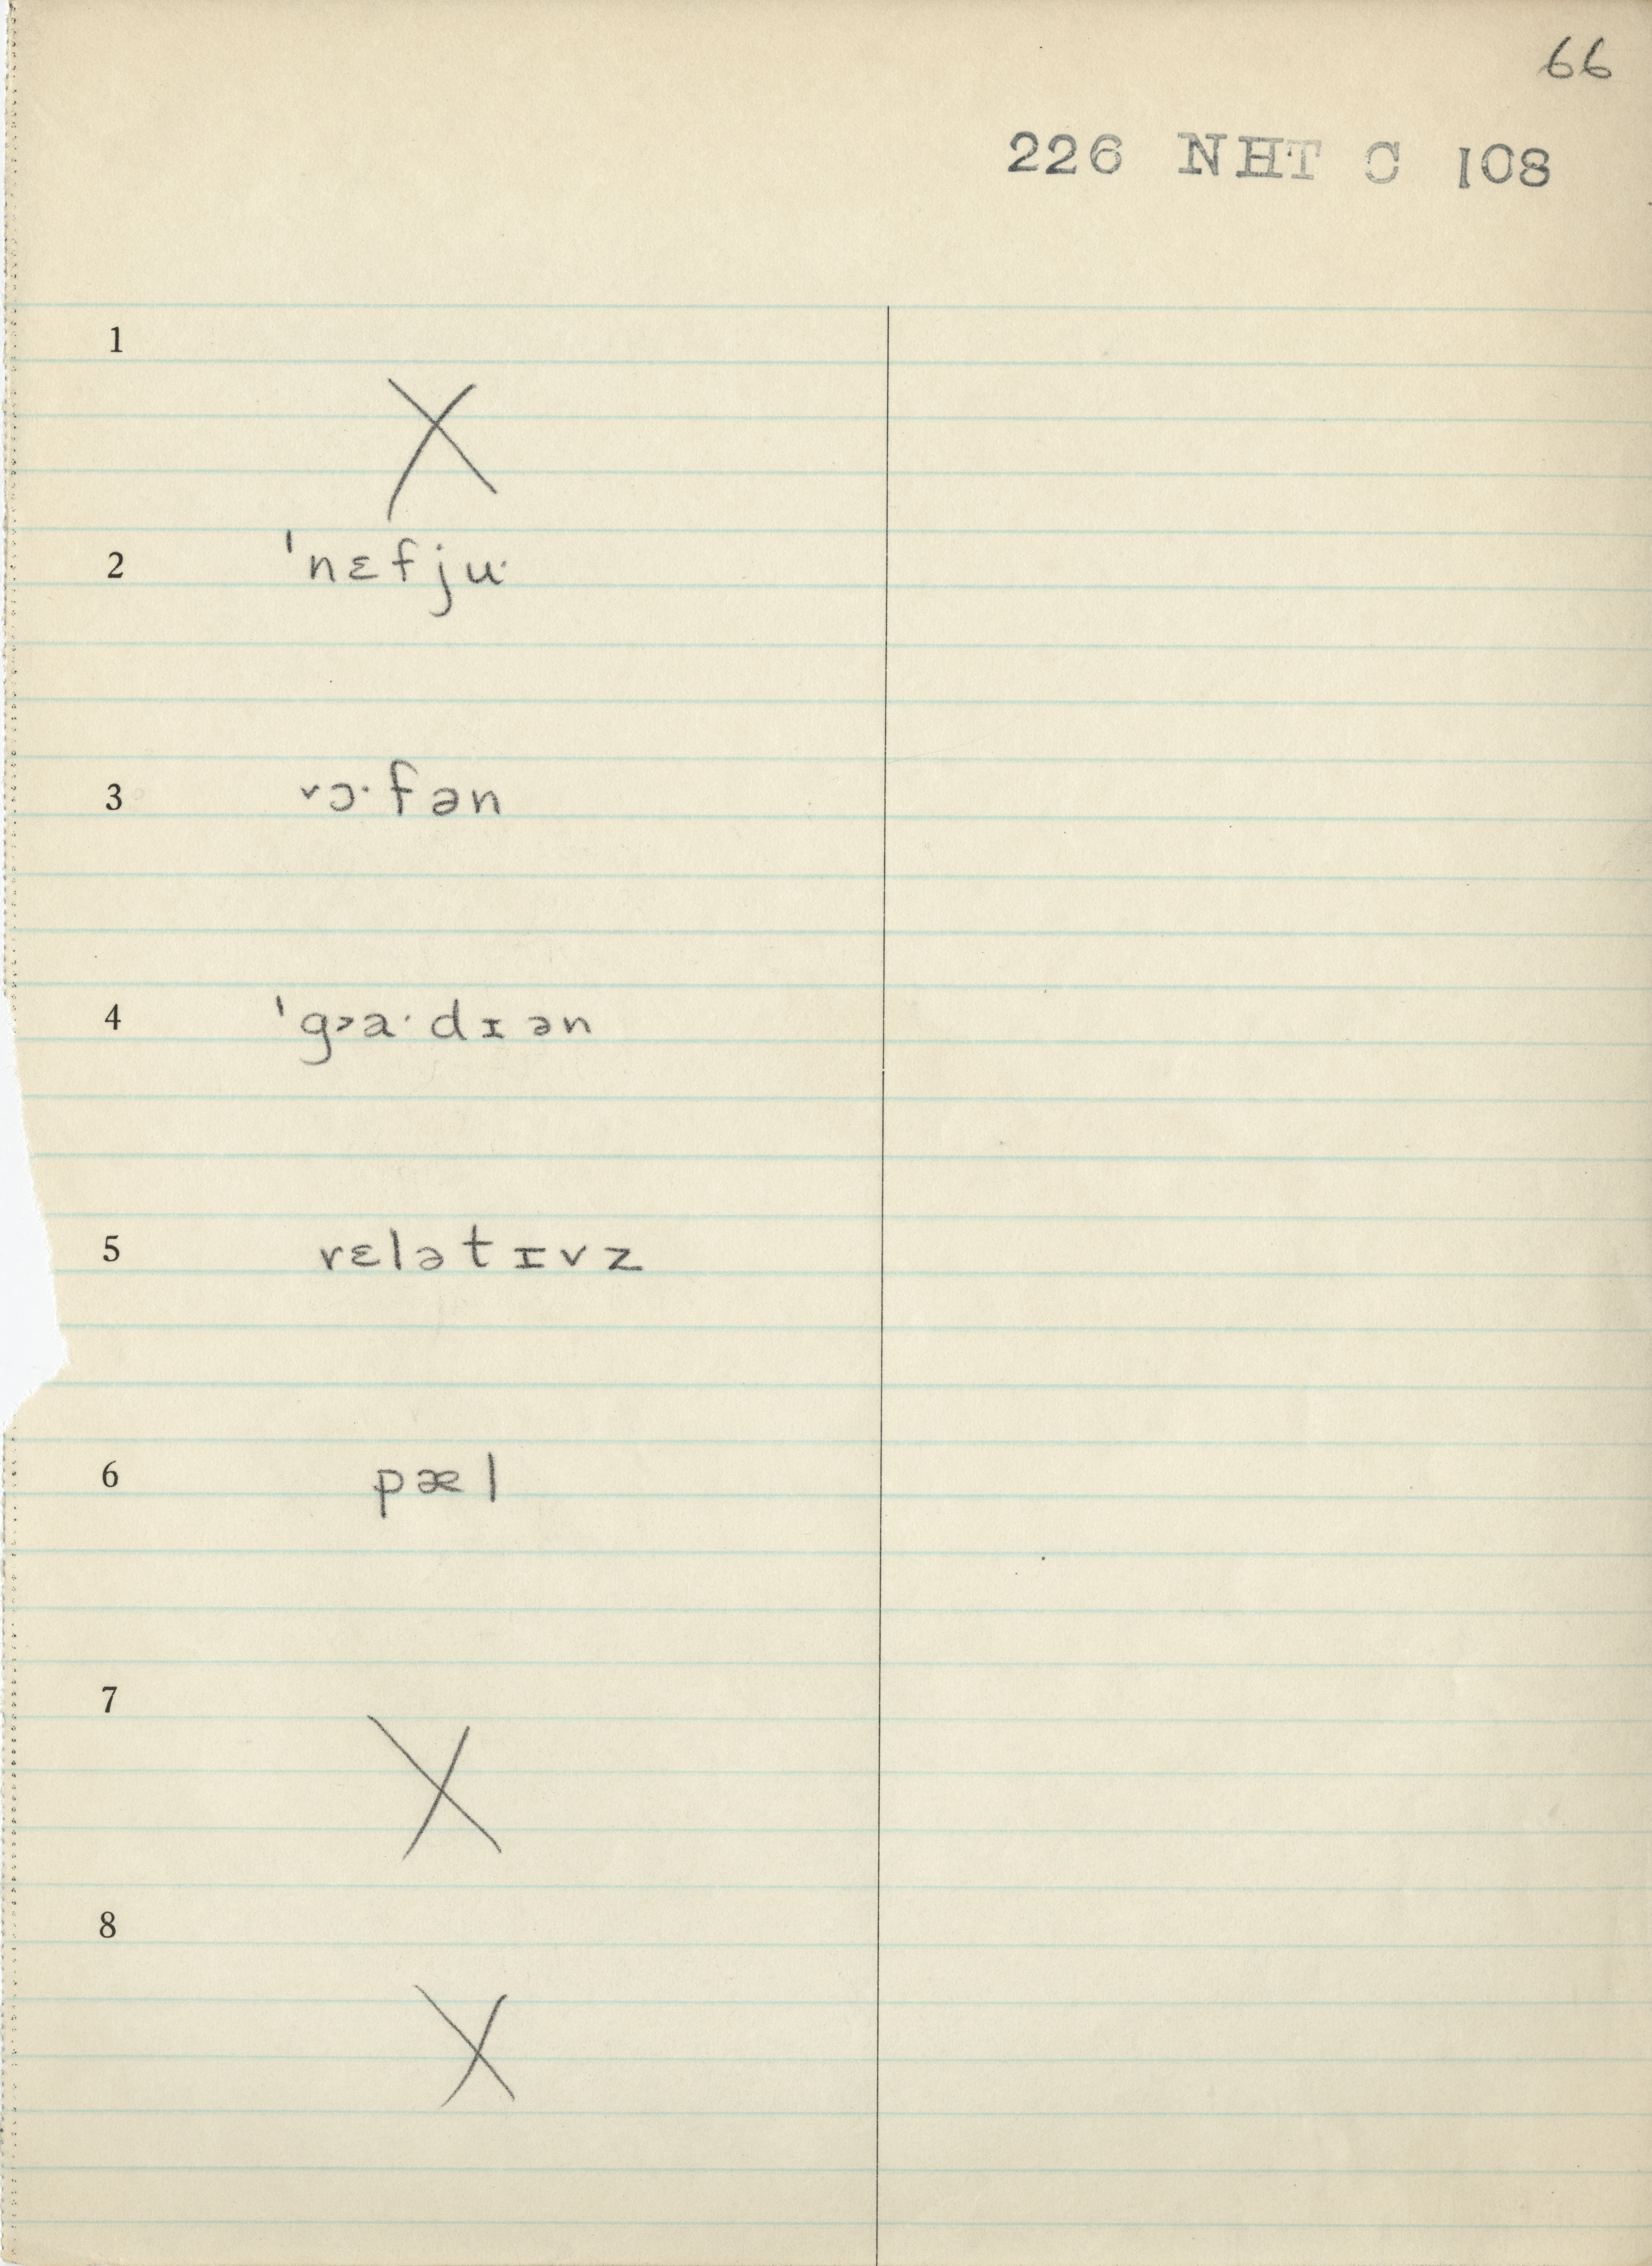 66
226 NHT C 108
1
X
2 ˈnɛfju·
3 ˅ɔ·fən
4 ˈg˃a·dɪən
5 rɛlətɪvz
6 pæl
7
X
8
X